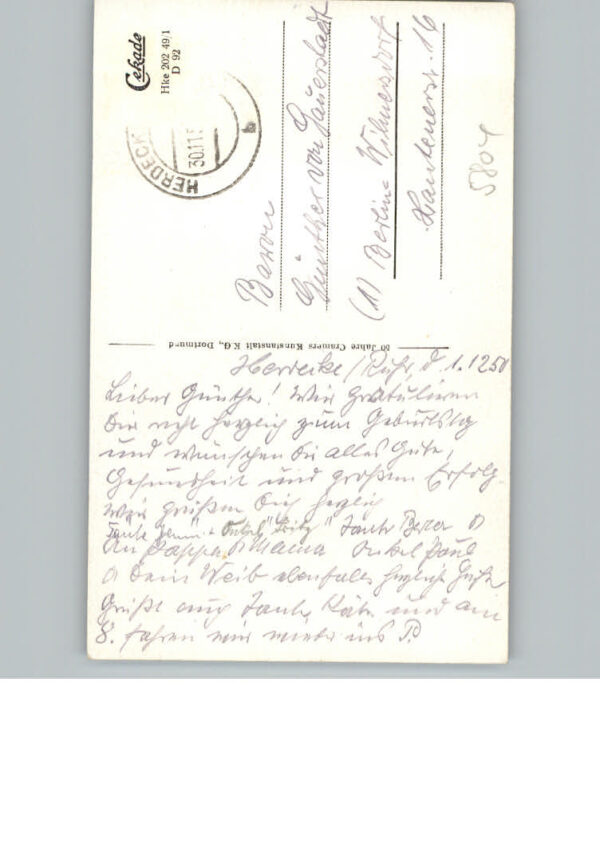 Cekade
Hke 202 49/1
D 92
HERDECK
30.11.5
b
Baron
Günther von Sauerstadt
(1) Berlin-Wilmersdorf
Xantenerstr. 16
5804
50 Jahre Cramers Kunstanstalt K.G., Dortmund
Herdecke/Ruhr, d. 1.12 50
Lieber Günther! Wir gratulieren
Dir recht herzlich zum Geburtstag
und wünschen Dir alles Gute,
Gesundheit und großen Erfolg.
Wir grüßen Dich herzlich
Tante " Onkel "Fritz" Tante
An Pappa Mama Onkel Paul
Dein Weib ebenfalls herzliche Grüße
Grüßt auch Tante Käte und am
8. fahren wir wieder ins